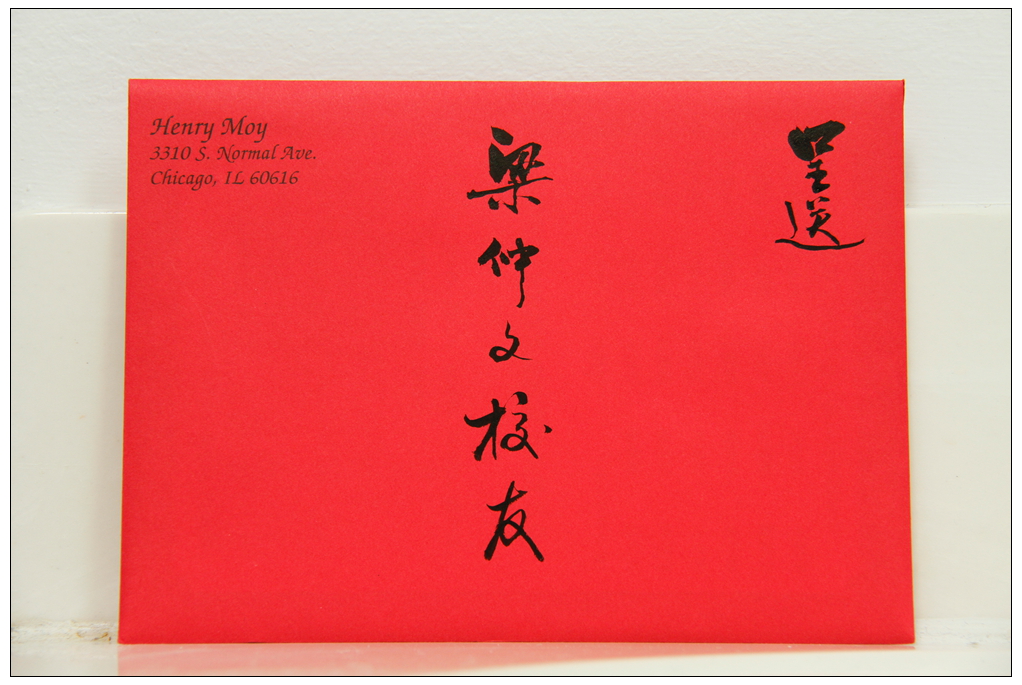 Henry Moy
3310 S. Normal Ave.
Chicago, IL 60616
呈送
梁仲文校友